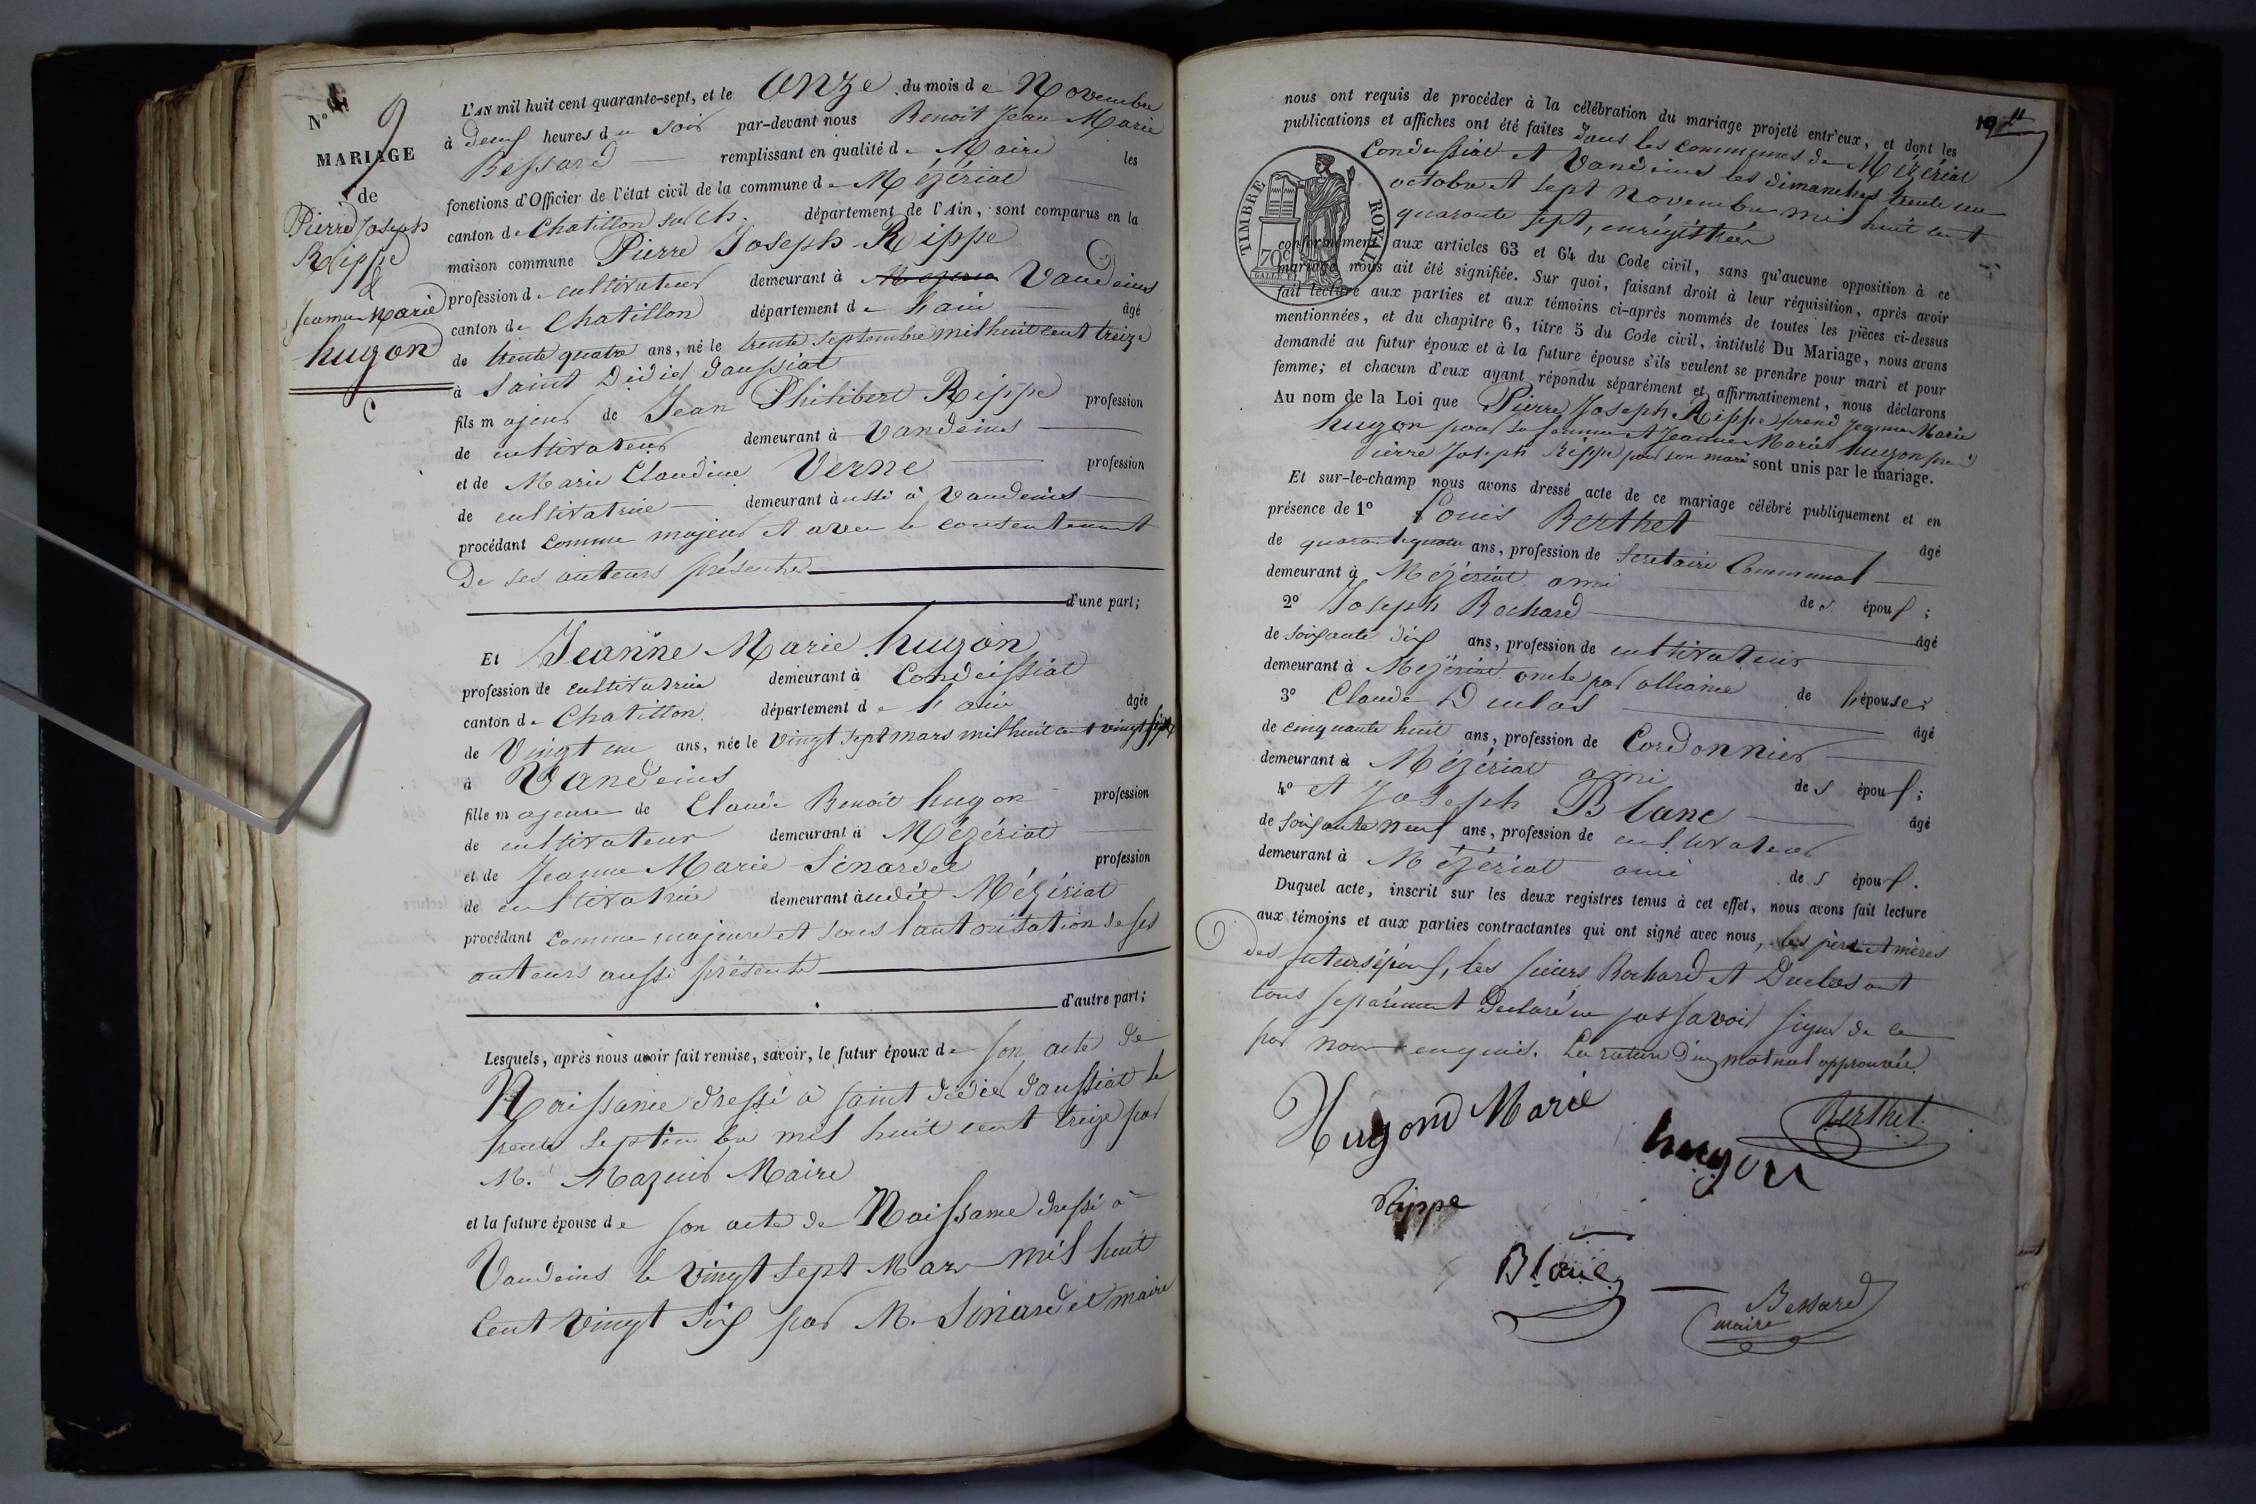 N° 9
MARIAGE
de
Pierre Joseph
Rippe
&
Jeanne Marie
hugon
L'AN mil huit cent quarante-sept, et le onze du mois de Novembre
à deux heures du soir par-devant nous Benoit Jean Marie
Bessard remplissant en qualité de Maire les
fonctions d'Officier de l'état civil de la commune de Mézériat
canton de Chatillon sur Ch. département de l'Ain, sont comparus en la
maison commune Pierre Joseph Rippe
profession de cultivateur demeurant à Vandeins
canton de Chatillon département de l'ain âgé
de trente quatre ans, né le trente septembre mil huit cent treize
à Saint Didier d'aussiat
fils majeur de Jean Philibert Rippe profession
de cultivateur demeurant à Vandeins
et de Marie Claudine Verne profession
de cultivatrice demeurant aussi à Vandeins
procédant comme majeur et avec le consentement
De ses auteurs présents
d'une part;
Et Jeanne Marie hugon
profession de cultivatrice demeurant à Condeissiat
canton de Chatillon département de l'ain âgée
de Vingt un ans, née le vingt sept mars mil huit cent vingt six
à Vandeins
fille majeure de Claude Benoit hugon profession
de cultivateur demeurant à Mézériat
et de Jeanne Marie Sinardet profession
de cultivatrice demeurant audit Mézériat
procédant comme majeure et sous l'autorisation de ses
auteurs aussi présents
d'autre part;
Lesquels, après nous avoir fait remise, savoir, le futur époux de son acte de
Naissance dressé à saint didier d'aussiat le
trente septembre mil huit cent treize par
M. Mazuir Maire
et la future épouse de son acte de Naissance dressé à
Vandeins le vingt sept Mars mil huit
Cent vingt six par M. Sinardet maire
19
nous ont requis de procéder à la célébration du mariage projeté entr'eux, et dont les
publications et affiches ont été faites dans les communes de Mézériat
Condeissiat et Vandeins les dimanches trente un
octobre et sept Novembre mil huit cent
quarante sept, enrégistrées
TIMBRE ROYAL
70c
conformément aux articles 63 et 64 du Code civil, sans qu'aucune opposition à ce
mariage nous ait été signifiée. Sur quoi, faisant droit à leur réquisition, après avoir
fait lecture aux parties et aux témoins ci-après nommés de toutes les pièces ci-dessus
mentionnées, et du chapitre 6, titre 5 du Code civil, intitulé Du Mariage, nous avons
demandé au futur époux et à la future épouse s'ils veulent se prendre pour mari et pour
femme; et chacun d'eux ayant répondu séparément et affirmativement, nous déclarons
Au nom de la Loi que Pierre Joseph Rippe prend Jeanne Marie
hugon pour sa femme et Jeanne Marie hugon prend
Pierre Joseph Rippe pour son mari sont unis par le mariage.
Et sur-le-champ nous avons dressé acte de ce mariage célébré publiquement et en
présence de 1° Louis Berthet âgé
de quarante quatre ans, profession de Secretaire Communal
demeurant à Mézériat ami des époux;
2° Joseph Bochard âgé
de soixante dix ans, profession de cultivateur
demeurant à Mézériat oncle par alliance de l'épouse;
3° Claude Duclos âgé
de cinquante huit ans, profession de Cordonnier
demeurant à Mézériat ami des époux;
4° et Joseph Blanc âgé
de soixante neuf ans, profession de cultivateur
demeurant à Mézériat ami des époux.
Duquel acte, inscrit sur les deux registres tenus à cet effet, nous avons fait lecture
aux témoins et aux parties contractantes qui ont signé avec nous, les père et mères
des futurs époux, les sieurs Bochard et Duclos ont
tous séparément déclaré ne pas savoir signer de ce
par nous enquis. La rature d'un mot nul approuvée.
Hugond Marie
Berthet
hugon
Rippe
Blanc
Bessard
maire